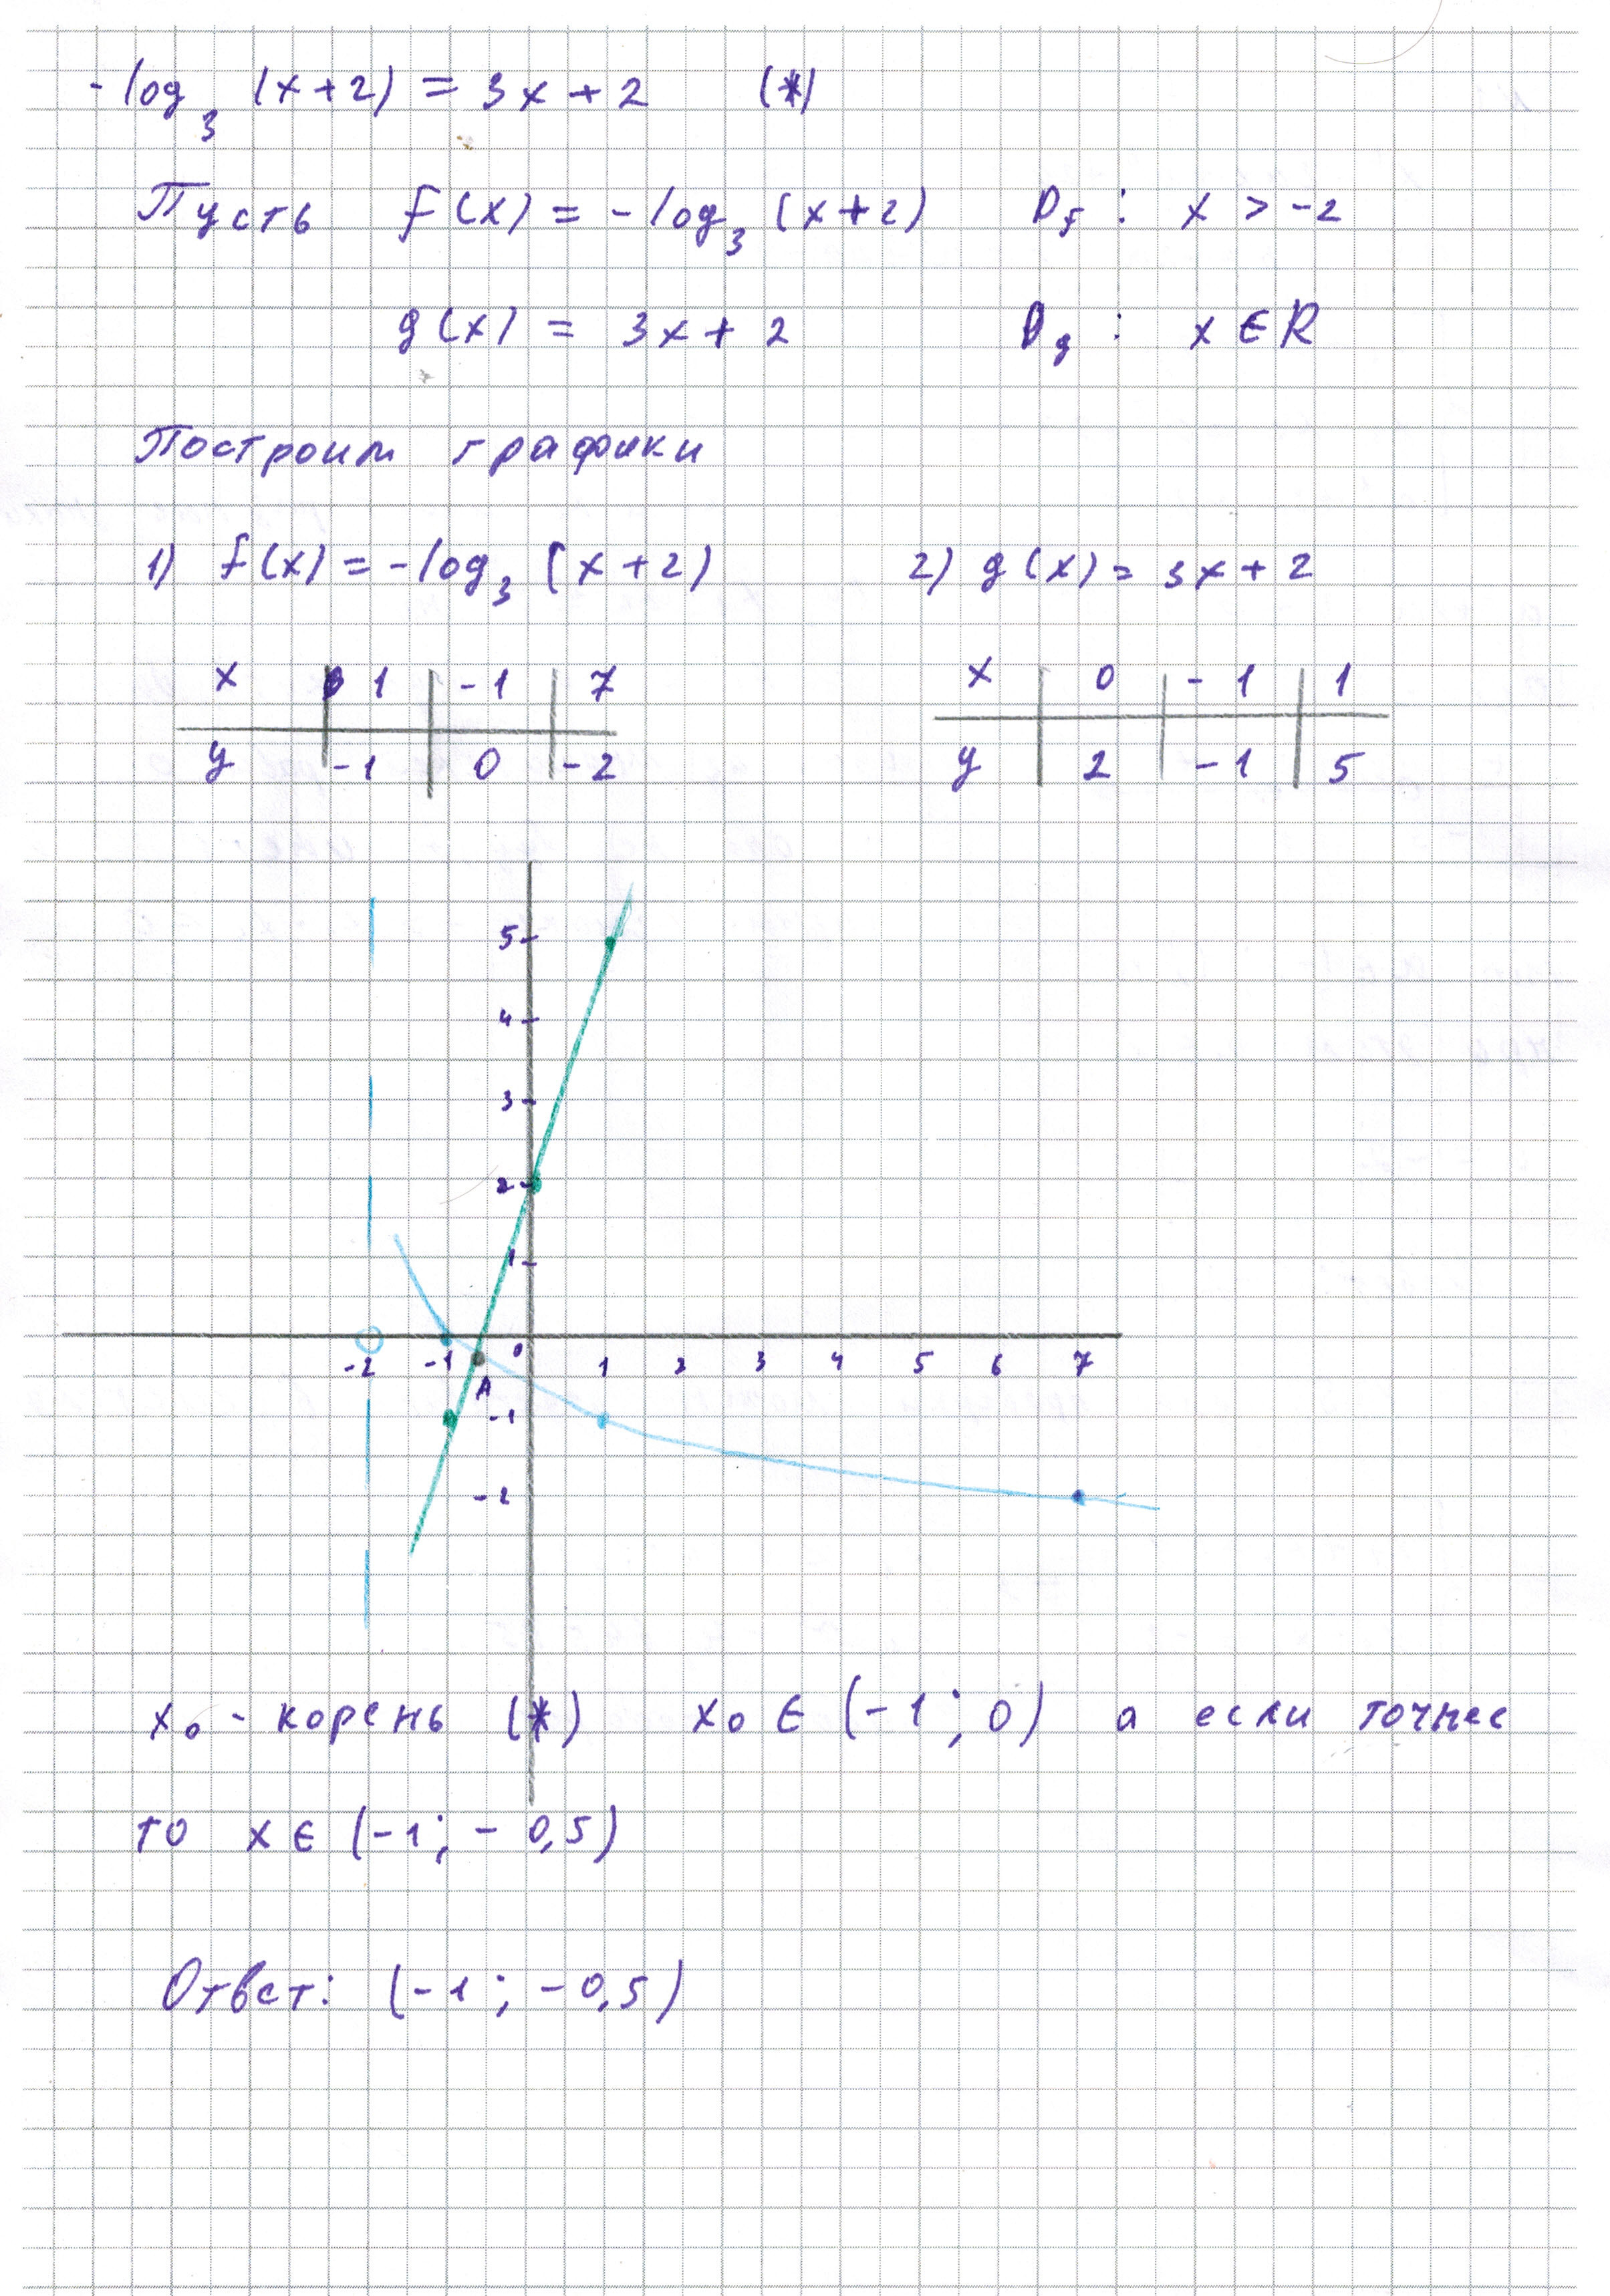 -log₃ (x+2) = 3x+2 (*)
Пусть f(x) = -log₃ (x+2) D_f : x > -2
g(x) = 3x+2 D_g : x ∈ R
Построим графики
1) f(x) = -log₃ (x+2) 2) g(x) = 3x+2
x 1 -1 7 x 0 -1 1
y -1 0 -2 y 2 -1 5
5
4
3
2
1
-2 -1 0 1 2 3 4 5 6 7
A
-1
-2
x₀ - корень (*) x₀ ∈ (-1; 0) а если точнее
то x ∈ (-1; -0,5)
Ответ: (-1; -0,5)